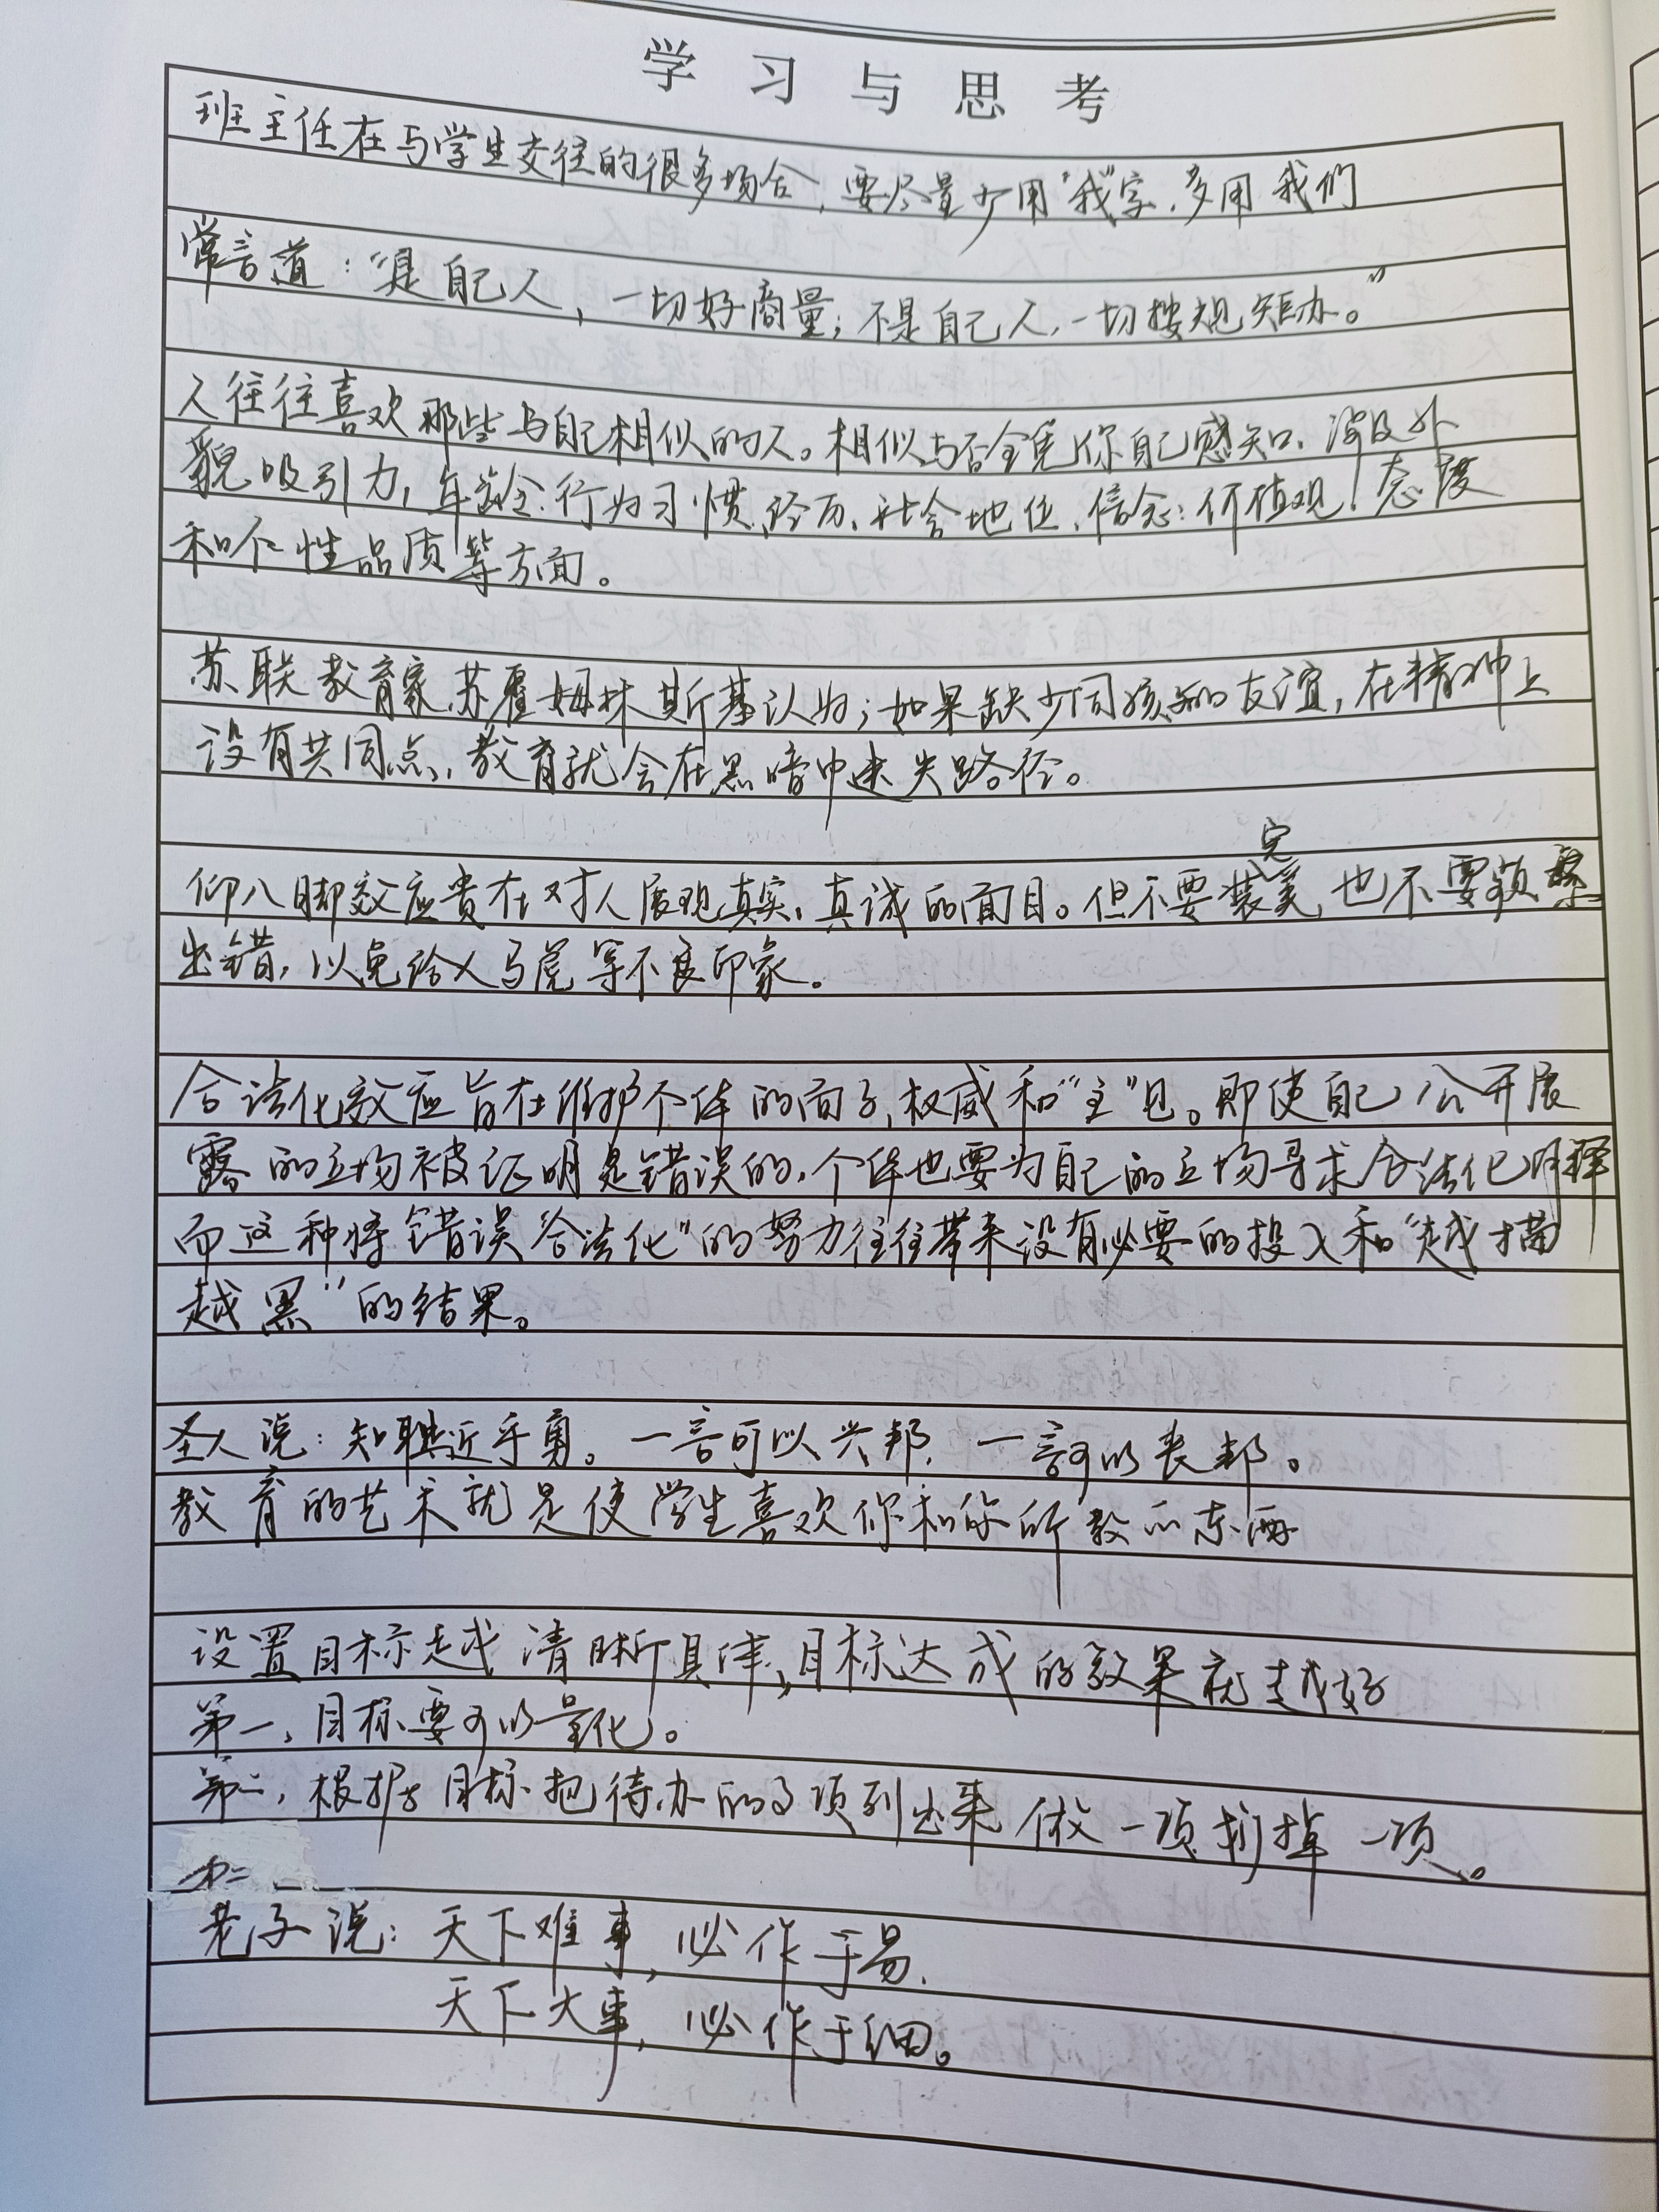 学习与思考
班主任在与学生交往的很多场合，要尽量少用“我”字，多用我们
常言道：“是自己人，一切好商量；不是自己人，一切按规矩办。”
人往往喜欢那些与自己相似的人。相似与否全凭你自己感知，涉及外
貌吸引力，年龄、行为习惯、经历、社会地位、信念、价值观、态度
和个性品质等方面。
苏联教育家苏霍姆林斯基认为；如果缺少同孩子的友谊，在精神上
没有共同点，教育就会在黑暗中迷失路径。
仰八脚效应贵在对人展现真实、真诚的面目。但不要装完美，也不要频繁
出错，以免给人马虎等不良印象。
合法化效应旨在维护个体的面子，权威和“主”见。即使自己公开展
露的立场被证明是错误的，个体也要为自己的立场寻求合法化解释
而这种将错误“合法化”的努力往往带来没有必要的投入和“越描
越黑”的结果。
圣人说：知耻近乎勇。一言可以兴邦，一言可以丧邦。
教育的艺术就是使学生喜欢你和你所教的东西
设置目标越清晰具体，目标达成的效果就越好
第一，目标要可以量化。
第二，根据目标把待办的事项列出来做一项划掉一项。
老子说：天下难事，必作于易，
天下大事，必作于细。